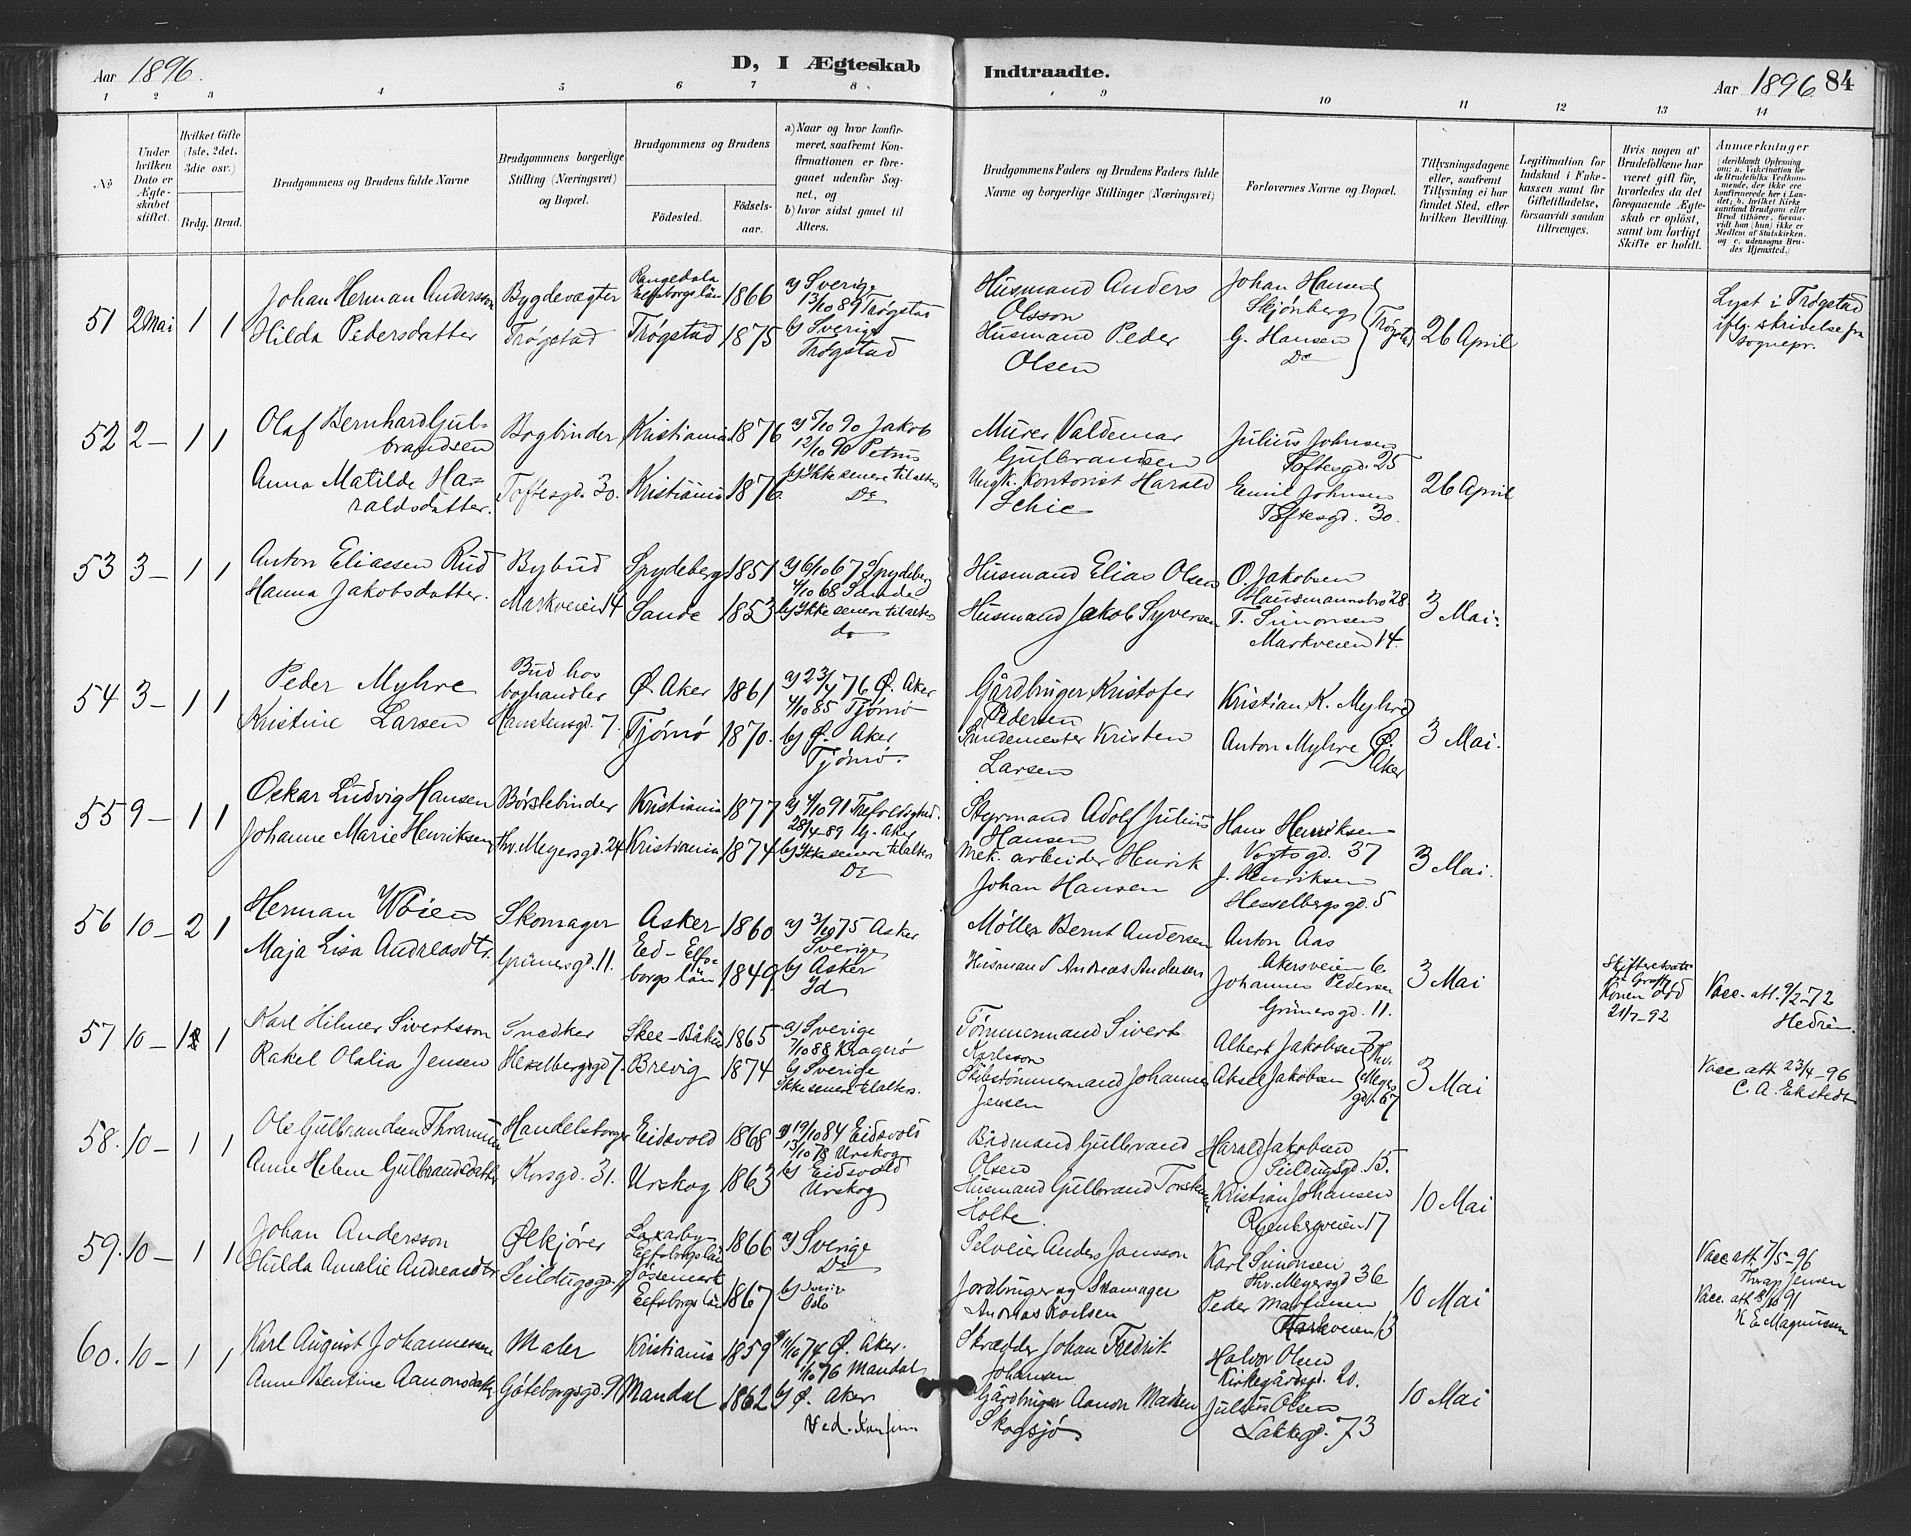 Aar 1896.
D, I Ægteskab
Indtraadte.
Aar 1896 84
1 2 3 4 5 6 7 8 9 10 11 12 13 14
No
Under hvilken Dato er Ægteskabet stiftet.
Hvilket Gifte (1ste, 2det, 3die osv.)
Brdg. Brud.
Brudgommens og Brudens fulde Navne
Brudgommens borgerlige Stilling (Næringsvei) og Bopæl.
Brudgommens og Brudens
Fødested.
Fødselsaar.
a) Naar og hvor konfirmeret, saafremt Konfirmationen er foregaaet udenfor Sognet, og
b) hvor sidst gaaet til Alters.
Brudgommens Faders og Brudens Faders fulde Navne og borgerlige Stillinger (Næringsvei)
Forlovernes Navne og Bopæl.
Tillysningsdagene eller, saafremt Tillysning ei har fundet Sted, efter hvilken Bevilling.
Legitimation for Indskud i Enkekassen samt for Giftetilladelse, forsaavidt saadan tiltrænges.
Hvis nogen af Brudefolkene har været gift før, hvorledes da det foregaaende Ægteskab er opløst, samt om lovligt Skifte er holdt.
Anmærkninger
(deriblandt Oplysning om: a. Vakcination for de Brudefolks Vedkommende, der ikke ere konfirmerede her i Landet; b. hvilket Kirkesamfund Brudgom eller Brud tilhører, forsaavidt han (hun) ikke er Medlem af Statskirken, og c. udensogns Brudes Hjemsted.
51 2 Mai 1 1
Johan Herman Andersson
Hilda Pedersdatter
Bygdevægter
Trøgstad
Rangedala
Elfsborgs län 1866
Trøgstad 1875
a) Sverige
13/10 89 Trøgstad
b) Sverige
Trøgstad
Husmand Anders
Olsson
Husmand Peder
Olsen
Johan Hansen
Skjønberg
G. Hansen
Do
Trøgstad
26 April
Lyst i Trøgstad
iflg. skrivelse fra
sognepr.
52 2 – 1 1
Olaf Bernhard Gul-
brandsen
Anna Matilde Ha-
raldsdatter.
Bogbinder
Toftesgd. 30.
Kristiania 1876
Kristiania 1876
a) 5/10 90 Jakob
12/10 90 Petrus
b) Ikke senere til alters
Do
Murer Valdemar
Gulbrandsen
Ungk. Kontorist Harald
Schie
Julius Johnsen
Toftesgd. 25
Emil Johnsen
Toftesgd. 30.
26 April
53 3 – 1 1
Anton Eliassen Rud
Hanna Jakobsdatter.
Bybud
Markveien 14
Spydeberg 1851
Sande 1853
a) 6/10 67 Spydeberg
4/10 68 Sande
b) Ikke senere til alters
do
Husmand Elias Olsen
Husmand Jakob Syversen
O. Jakobsen
Hausmannsbro 28
T. Simonsen
Markveien 14.
3 Mai.
54 3 – 1 1
Peder Myhre
Kristine Larsen
Bud hos
boghandler
Hanstensgd. 7.
Ø. Aker 1861
Tjømø 1870.
a) 23/4 76 Ø. Aker
4/10 85 Tjømø
b) Ø. Aker
Tjømø.
Gårdbruger Kristofer
Pedersen
Smedemester Kristen
Larsen
Kristian K. Myhre
Anton Myhre
Ø. Aker
3 Mai.
55 9 – 1 1
Oskar Ludvig Hansen
Johanne Marie Henriksen
Børstebinder
Thv. Meyersgd. 24
Kristiania 1877
Kristiania 1874
a) 4/10 91 Trefoldighed.
28/4 89 G. Aker
b) Ikke senere til alters
Do
Styrmand Adolf Julius
Hansen
Mek. arbeider Henrik
Johan Hansen
Hans Henriksen
Vogtsgd. 37
J. Henriksen
Hesselbergsgd. 5
3 Mai.
56 10 – 2 1
Herman Wøien
Maja Lisa Andreasdtr.
Skomager
Grünersgd. 11.
Asker 1860
Eed – Elfs-
borgs län 1849
a) 3/10 75 Asker
Sverige
b) Asker
Id
Møller Bernt Andersen
Husmand Andreas Andersen
Anton Aas
Akersveien 6.
Johannes Pedersen
Grünersgd. 11.
3 Mai
Konen død
21/7 – 92
Vacc. att. 9/2 – 72
Hedrén.
57 10 – 1 1
Karl Hilmer Sivertsson
Rakel Olalia Jensen
Snedker
Hesselbergsgd 7.
Skee – Båhus 1865
Brevig 1874
a) Sverige
7/10 88 Kragerø
b) Sverige
Ikke senere til alters.
Tømmermand Sivert
Karlsson
Skibstømmermand Johannes
Jensen
Albert Jakobsen
Aksel Jakobsen
Thv. Meyersgd. 67
3 Mai
Vacc. att. 23/4 – 96
C. A. Ekstedt
58. 10 – 1 1
Ole Gulbrandsen Thramun
Anne Helene Gulbrandsdatter
Handelsborger
Korsgd. 31.
Eidsvold 1868
Urskog 1863
a) 19/10 84 Eidsvold
13/10 78 Urskog
b) Eidsvold
Urskog
Bødmand Gulbrand
Olsen
Husmand Gulbrand Torstensen
Holte.
Harald Jakobsen
Seildugsgd. 15.
Kristian Johansen
Ryenbergveien 17
10 Mai
59. 10 – 1 1
Johan Andersson
Hulda Amalie Andreasdtr
Ølkjører
Seildugsgd. 7
Laxarby –
Elfsborgs län 1866
Jössemark
Elfsborgs län 1867
a) Sverige
Do
b) Sverige
Oslo
Selveier Anders Jansson
Jordbruger og Skomager
Andreas Karlsen
Karl Simonsen
Thv. Meyersgd 36
Peder Martinsen
Markveien 13
10 Mai
Vacc. att. 7/5 – 96
Thrap Jensen
Vacc. att. 8/10 91
K E Magnussen
60. 10 – 1 1
Karl August Johannessen
Anne Bentine Aanonsdatter
Maler
Göteborgsgd. 9
Kristiania 1859
Mandal 1862
a) 4/10 74 Ø. Aker.
1/10 76 Mandal
b) Ø. Aker
Ved. konfirm
Skrædder Johan Fredrik
Johansen
Gårdbruger Aanon Madsen
Skogsjø.
Halvor Olsen
Kirkegårdsgd. 20.
Julius Olsen
Lakkegd. 73
10 Mai